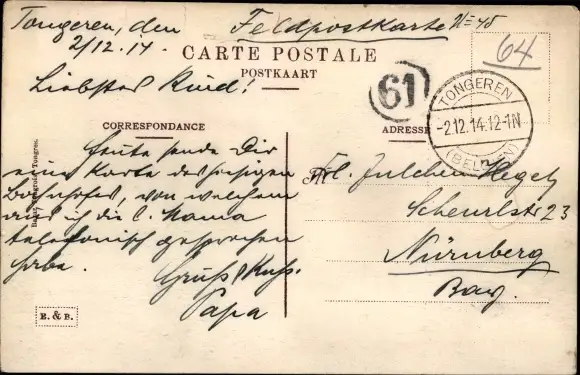 Tongeren, den
2/12.14.
Feldpostkarte No 45
64
CARTE POSTALE
POSTKAART
Liebstes Kind!
61
TONGEREN
-2.12.14.12-1N
(BELGIEN)
CORRESPONDANCE
ADRESSE
Heute sende Dir
eine Karte des hiesigen
Bahnhofes, von welchem
aus ich die l. Mama
telefonisch gesprochen
habe.
Gruß & Kuss.
Papa
Frl. Julchen Hegel
Scheurlstr 23
Nürnberg
Bay.
B. & B.